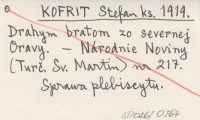 KOFRIT Stefan ks. 1919.
Drahým bratom zo severnej
Oravy. – Národnie Noviny
(Turč. Sv. Martin) nr 217.
Sprawa plebiscytu.